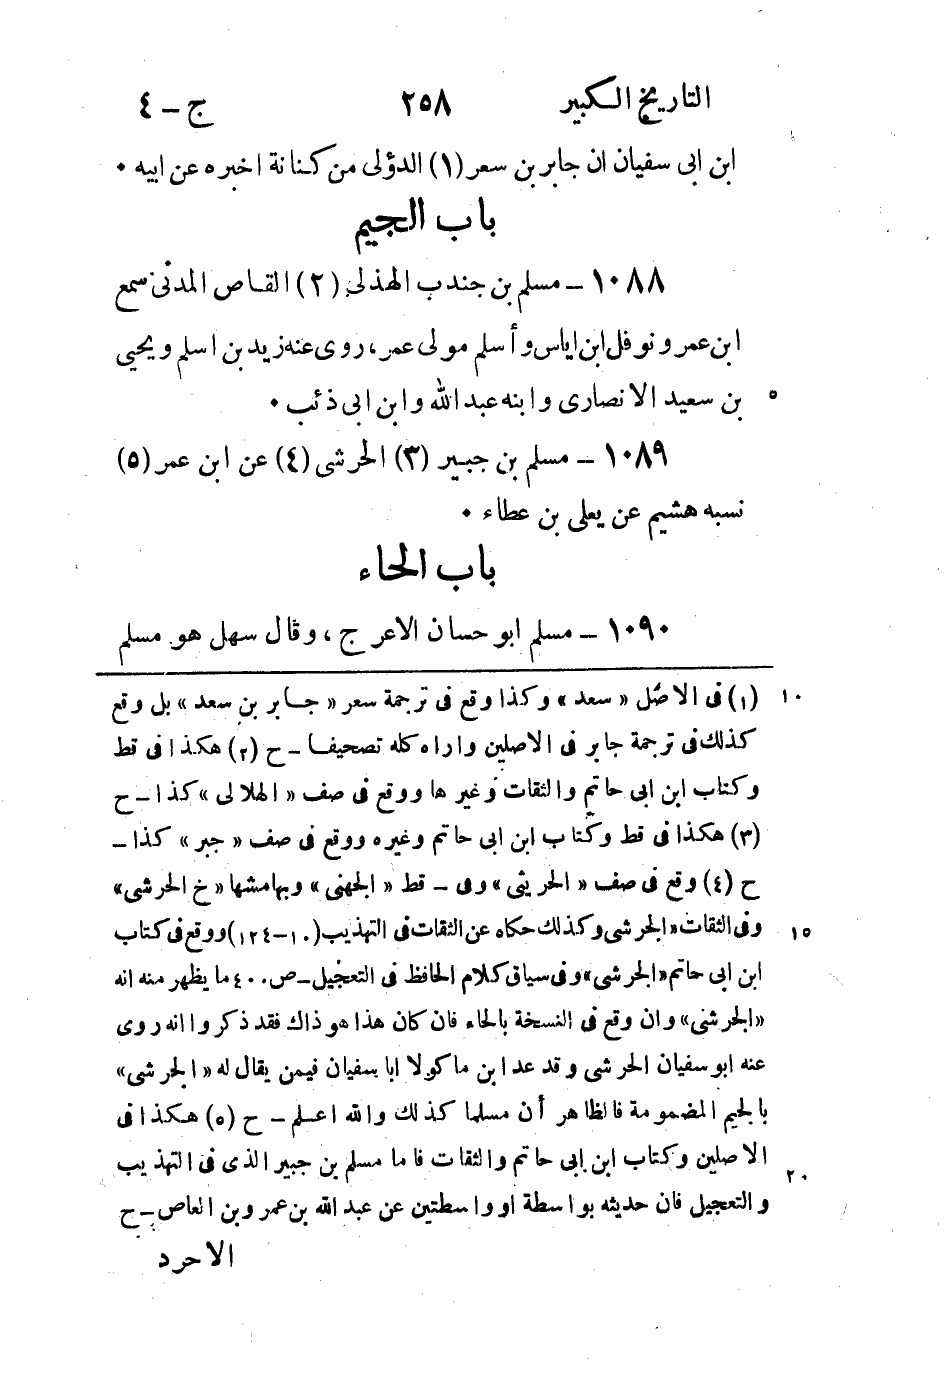 التاريخ الكبير ٢٥٨ ج – ٤
ابن ابى سفيان ان جابر بن سعر (١) الدؤلى من كنانة اخبره عن ابيه ٠
باب الجيم
١٠٨٨ – مسلم بن جندب الهذلى (٢) القاص المدنى سمع
ابن عمر و نوفل ابن اياس و أسلم مولى عمر، روى عنه زيد بن اسلم و يحيى
بن سعيد الانصارى و ابنه عبد الله و ابن ابى ذئب ٠ ٥
١٠٨٩ – مسلم بن جبير (٣) الحرشى (٤) عن ابن عمر (٥)
نسبه هشيم عن يعلى بن عطاء ٠
باب الحاء
١٠٩٠ – مسلم ابو حسان الاعرج ، وقال سهل هو مسلم
(١) فى الاصل « سعد » وكذا وقع فى ترجمة سعر « جابر بن سعد » بل وقع ١٠
كذلك فى ترجمة جابر فى الاصلين واراه كله تصحيفا – ح (٢) هكذا فى قط
وكتاب ابن ابى حاتم والثقات وغيرها ووقع فى صف « الهلالى » كذا – ح
(٣) هكذا فى قط وكتاب ابن ابى حاتم وغيره ووقع فى صف « جبر » كذا –
ح (٤) وقع فى صف « الحريثى » وفى – قط « الجهنى » وبهامشها « خ الحرشى»
وفى الثقات «الجرشى وكذلك حكاه عن الثقات فى التهذيب (١٠–١٢٤) ووقع فى كتاب ١٥
ابن ابى حاتم «الجرشى» وفى سياق كلام الحافظ فى التعجيل – ص ٤٠٠ ما يظهر منه انه
«الجرشى» وان وقع فى النسخة بالحاء فان كان هذا هو ذاك فقد ذكروا انه روى
عنه ابو سفيان الحرشى وقد عد ابن ماكولا ابا سفيان فيمن يقال له «الجرشى»
بالجيم المضمومة فالظاهر أن مسلما كذلك والله اعلم – ح (٥) هكذا فى
الاصلين وكتاب ابن ابى حاتم والثقات فاما مسلم بن جبير الذى فى التهذيب ٢٠
والتعجيل فان حديثه بواسطة او واسطتين عن عبد الله بن عمرو بن العاص – ح
الاحرد